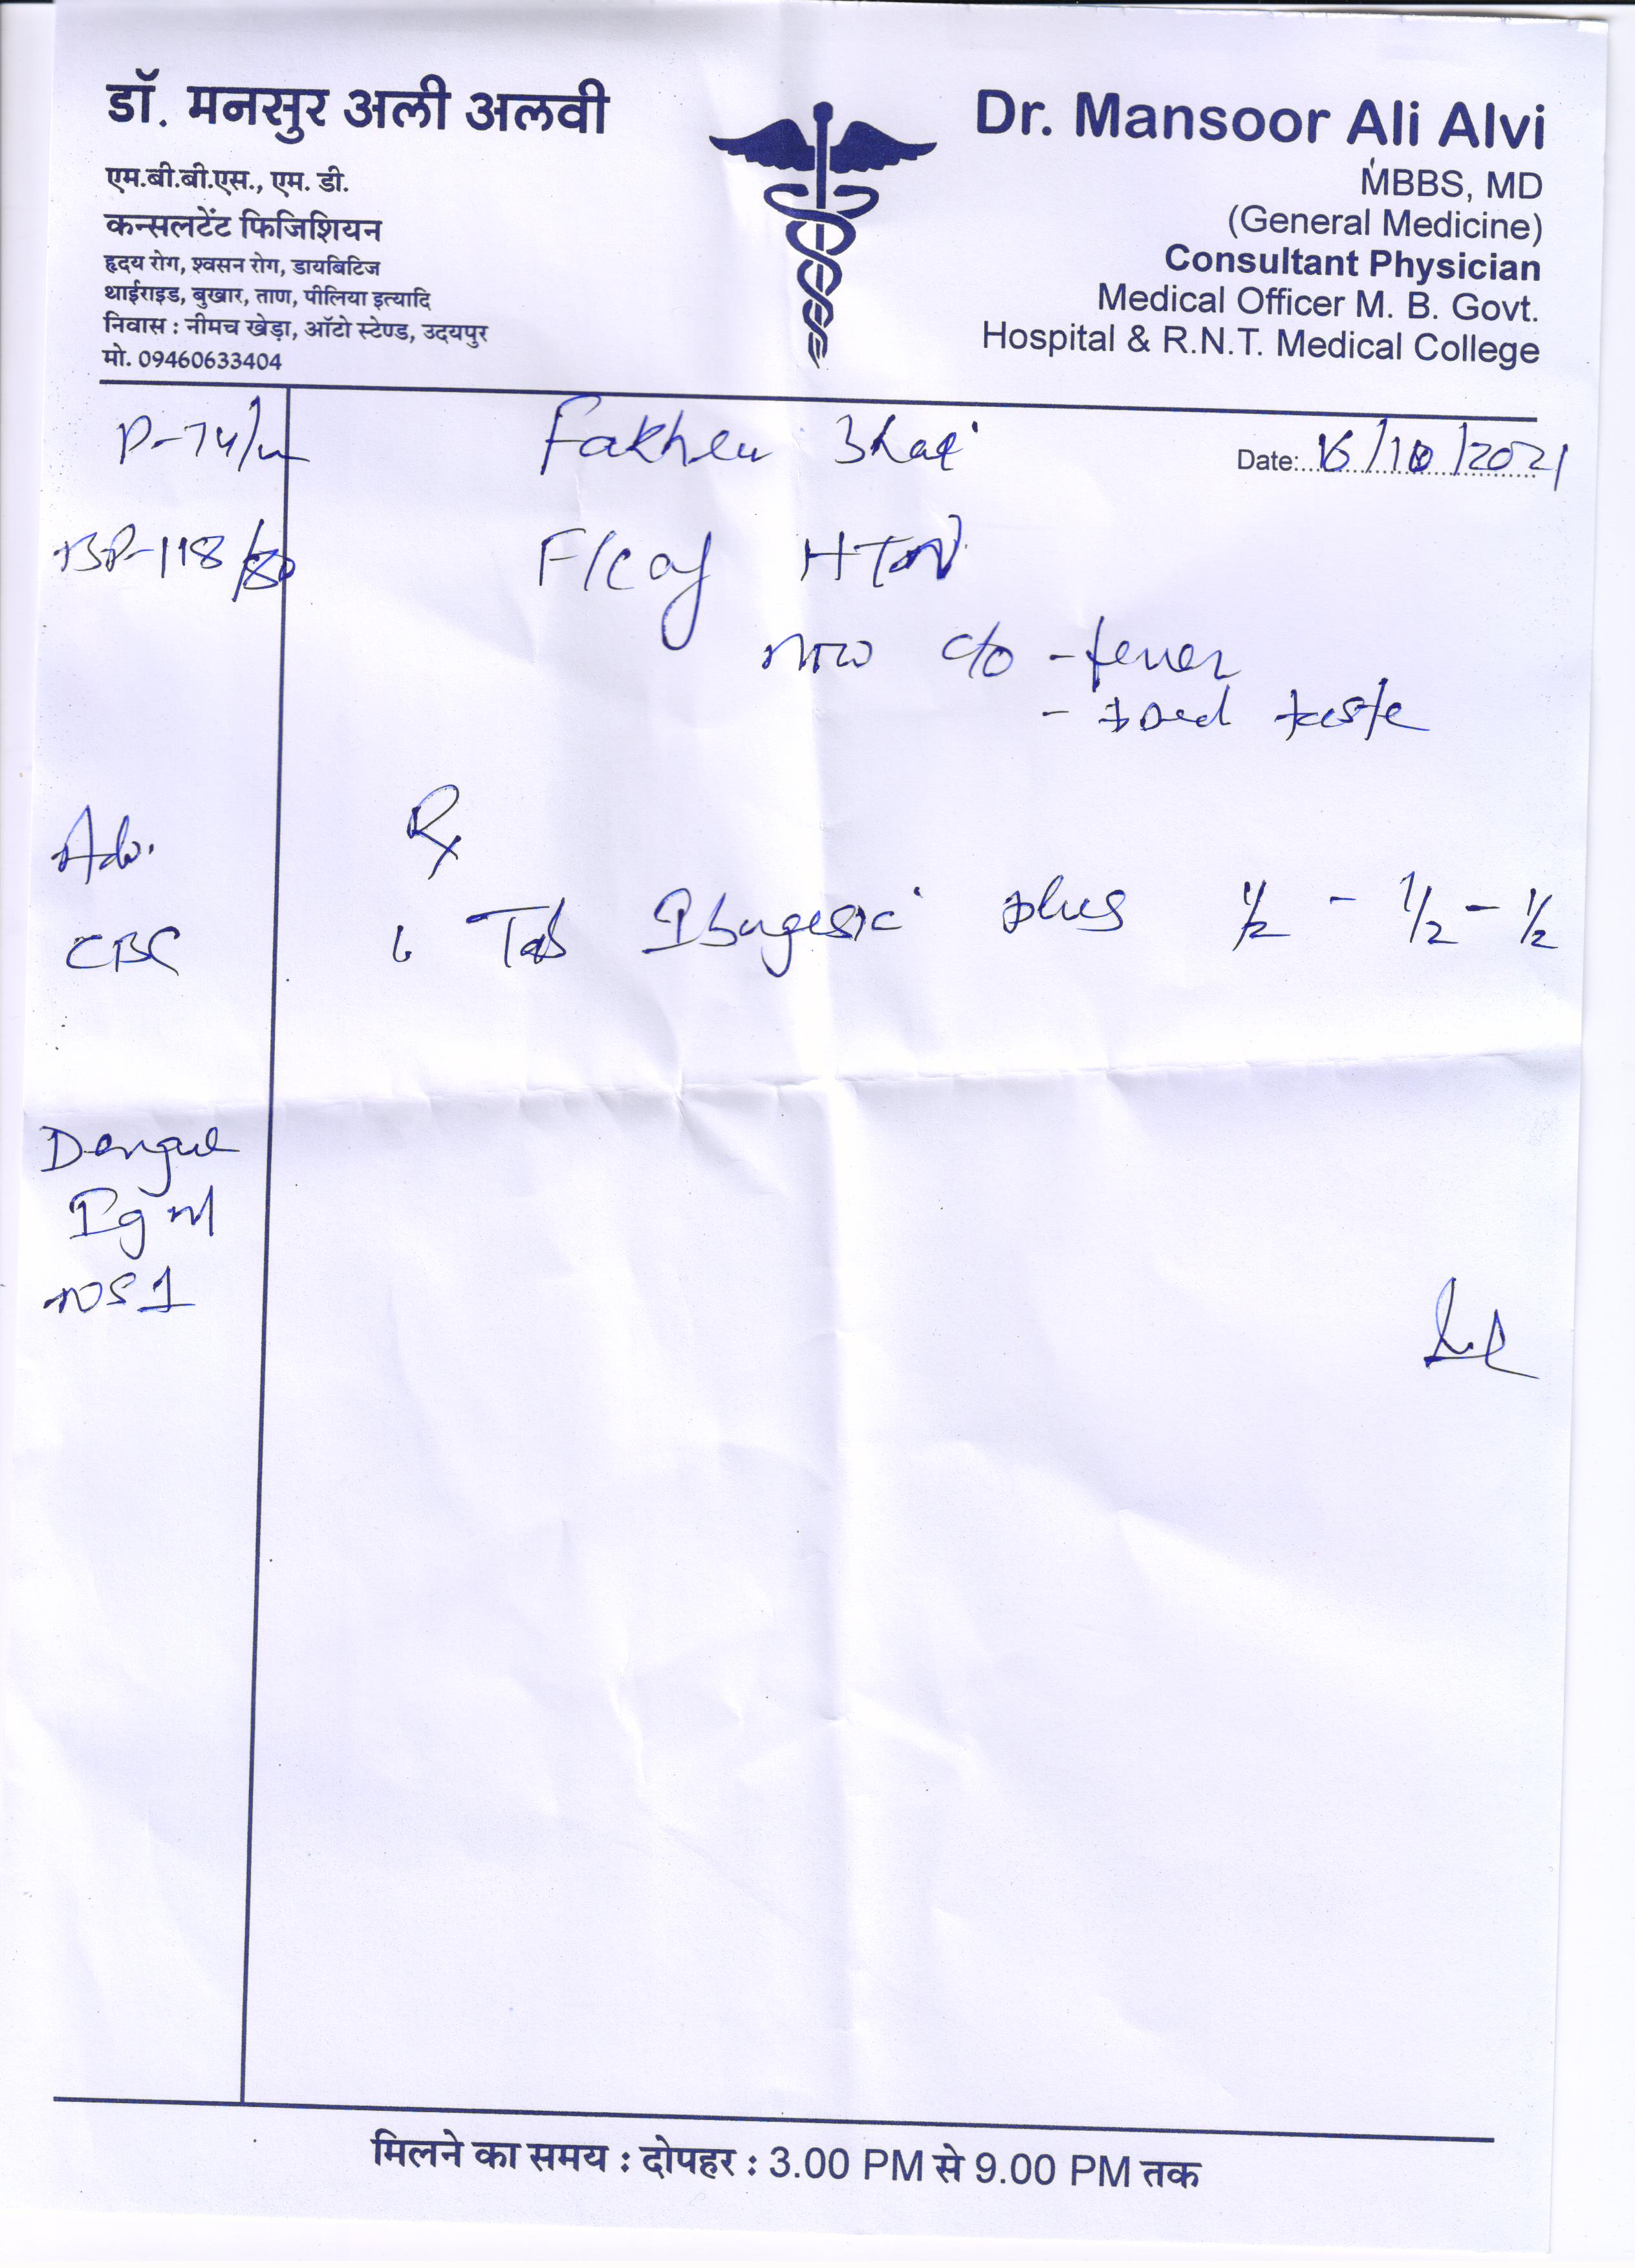 डॉ. मनसुर अली अलवी
एम.बी.बी.एस., एम. डी.
कन्सलटेंट फिजिशियन
हृदय रोग, श्वसन रोग, डायबिटिज
थाईराइड, बुखार, ताण, पीलिया इत्यादि
निवास : नीमच खेड़ा, ऑटो स्टेण्ड, उदयपुर
मो. 09460633404
Dr. Mansoor Ali Alvi
MBBS, MD
(General Medicine)
Consultant Physician
Medical Officer M. B. Govt.
Hospital & R.N.T. Medical College
P-74/m
Bhai
Date: 16/10/2021
BP-118/80
HTN
now c/o - fever
- bad taste
Adv.
Rx
CBC
Tab Ibugesic plus 1/2 - 1/2 - 1/2
Dengue
IgM
NS1
मिलने का समय : दोपहर : 3.00 PM से 9.00 PM तक